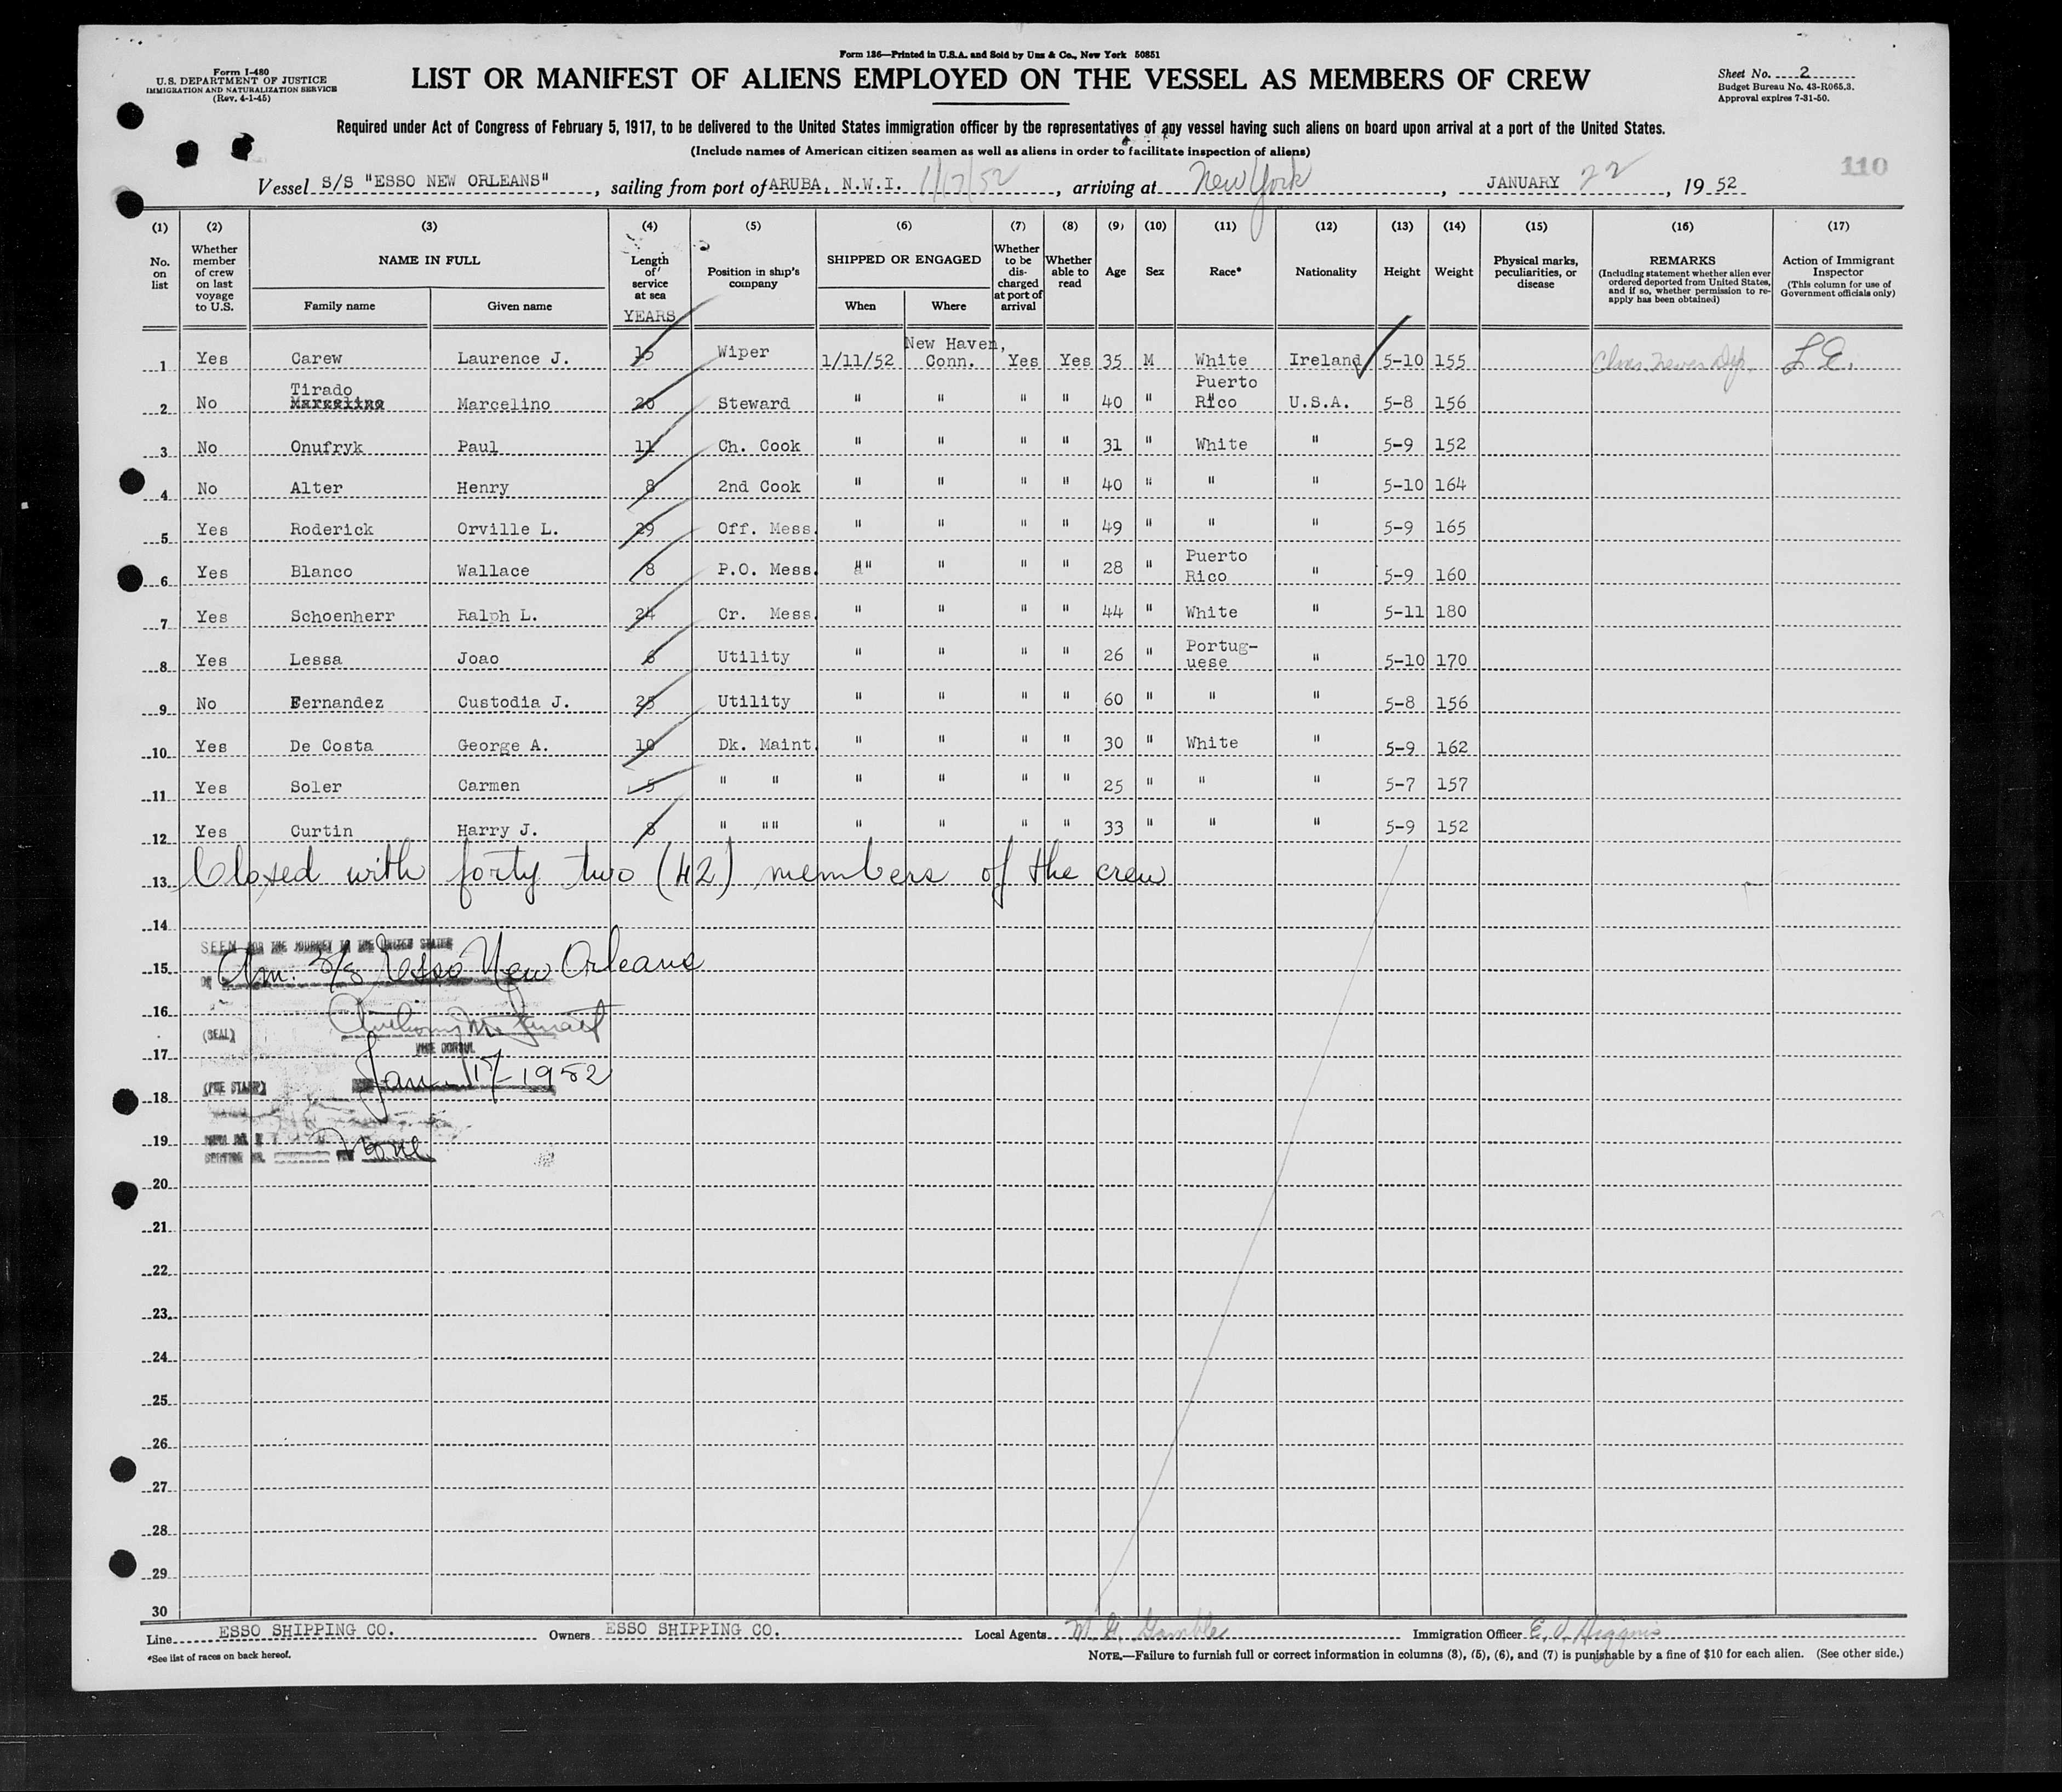 Form 136—Printed in U.S.A. and Sold by Unz & Co., New York 50851
Form I-480
U.S. DEPARTMENT OF JUSTICE
IMMIGRATION AND NATURALIZATION SERVICE
(Rev. 4-1-45)
LIST OR MANIFEST OF ALIENS EMPLOYED ON THE VESSEL AS MEMBERS OF CREW
Sheet No. 2
Budget Bureau No. 43-R065.3.
Approval expires 7-31-50.
Required under Act of Congress of February 5, 1917, to be delivered to the United States immigration officer by the representatives of any vessel having such aliens on board upon arrival at a port of the United States.
(Include names of American citizen seamen as well as aliens in order to facilitate inspection of aliens)
110
Vessel S/S "ESSO NEW ORLEANS", sailing from port of ARUBA, N.W.I. 1/17/52, arriving at New York, JANUARY 22, 19 52
(1) (2) (3) (4) (5) (6) (7) (8) (9) (10) (11) (12) (13) (14) (15) (16) (17)
No. on list
Whether member of crew on last voyage to U.S.
NAME IN FULL
Family name
Given name
Length of service at sea
YEARS
Position in ship's company
SHIPPED OR ENGAGED
When
Where
Whether to be discharged at port of arrival
Whether able to read
Age
Sex
Race*
Nationality
Height
Weight
Physical marks, peculiarities, or disease
REMARKS
(Including statement whether alien ever ordered deported from United States, and if so, whether permission to reapply has been obtained)
Action of Immigrant Inspector
(This column for use of Government officials only)
1 Yes Carew Laurence J. 15 Wiper 1/11/52 New Haven, Conn. Yes Yes 35 M White Ireland 5-10 155 never Dep. L E.
2 No Tirado Marcelino 20 Steward " " " " 40 " Puerto Rico U.S.A. 5-8 156
3 No Onufryk Paul 11 Ch. Cook " " " " 31 " White " 5-9 152
4 No Alter Henry 8 2nd Cook " " " " 40 " " " 5-10 164
5 Yes Roderick Orville L. 29 Off. Mess. " " " " 49 " " " 5-9 165
6 Yes Blanco Wallace 8 P.O. Mess. " " " " 28 " Puerto Rico " 5-9 160
7 Yes Schoenherr Ralph L. 24 Cr. Mess. " " " " 44 " White " 5-11 180
8 Yes Lessa Joao 6 Utility " " " " 26 " Portug-uese " 5-10 170
9 No Fernandez Custodia J. 25 Utility " " " " 60 " " " 5-8 156
10 Yes De Costa George A. 10 Dk. Maint. " " " " 30 " White " 5-9 162
11 Yes Soler Carmen 5 " " " " " " 25 " " " 5-7 157
12 Yes Curtin Harry J. 8 " "" " " " " 33 " " " 5-9 152
13 Closed with forty two (42) members of the crew
14
SEEN FOR THE JOURNEY TO THE UNITED STATES
15 Am. S/S Esso New Orleans
16
(SEAL)
17 VICE CONSUL
Jan. 17-1952
18 (FEE STAMP)
19
None
20
21
22
23
24
25
26
27
28
29
30
Line ESSO SHIPPING CO. Owners ESSO SHIPPING CO. Local Agents M. G. Gamble Immigration Officer E. J. Higgins
*See list of races on back hereof.
NOTE.—Failure to furnish full or correct information in columns (3), (5), (6), and (7) is punishable by a fine of $10 for each alien. (See other side.)